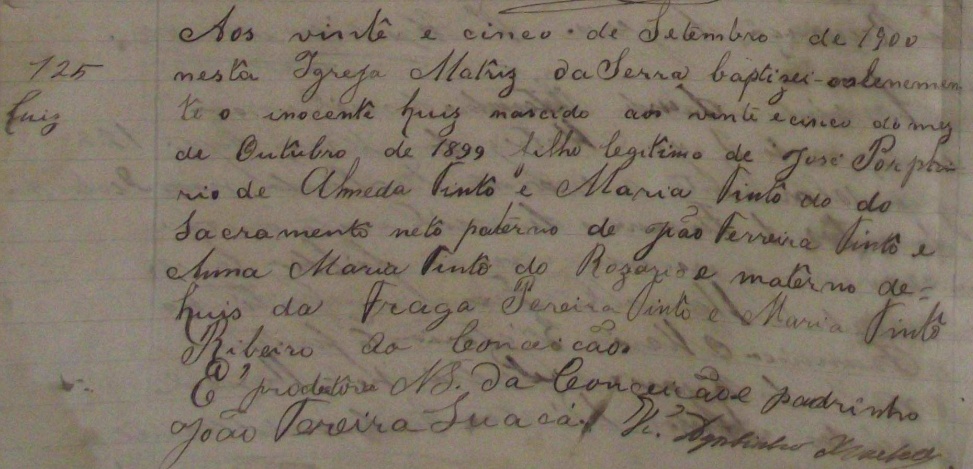 Aos vinte e cinco de Setembro de 1900
125
nesta Igreja Matriz da Serra baptizei solenemen
Luiz
te o inocente Luiz nascido aos vinte e cinco do mez
de Outubro de 1899 filho legitimo de José Porphi-
rio de Almeda Pinto e Maria Pinto do do
Sacramento neto paterno de João Ferreira Pinto e
Anna Maria Pinto do Rozario e materno de=
Luis da Fraga Pereira Pinto e Maria Pinto
Ribeiro da Conceição
É protetora N. S. da Conceição e padrinho
João Pereira Suacá. V.